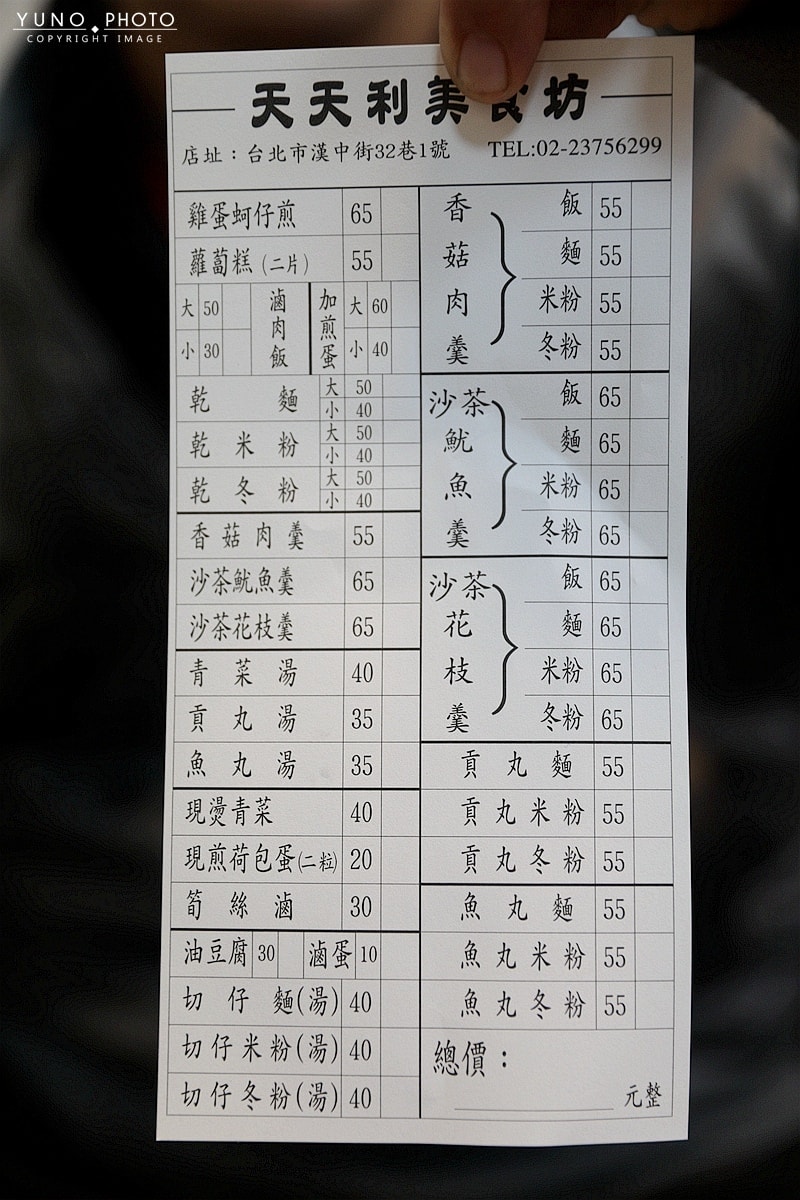 YUNO PHOTO
COPYRIGHT IMAGE
天天利美食坊
店址：台北市漢中街32巷1號 TEL:02-23756299
雞蛋蚵仔煎 65
蘿蔔糕(二片) 55
大 50 滷肉飯 加煎蛋 大 60
小 30 小 40
乾麵 大 50
小 40
乾米粉 大 50
小 40
乾冬粉 大 50
小 40
香菇肉羹 55
沙茶魷魚羹 65
沙茶花枝羹 65
青菜湯 40
貢丸湯 35
魚丸湯 35
現燙青菜 40
現煎荷包蛋(二粒) 20
筍絲滷 30
油豆腐 30 滷蛋 10
切仔麵(湯) 40
切仔米粉(湯) 40
切仔冬粉(湯) 40
香菇肉羹
飯 55
麵 55
米粉 55
冬粉 55
沙茶魷魚羹
飯 65
麵 65
米粉 65
冬粉 65
沙茶花枝羹
飯 65
麵 65
米粉 65
冬粉 65
貢丸麵 55
貢丸米粉 55
貢丸冬粉 55
魚丸麵 55
魚丸米粉 55
魚丸冬粉 55
總價：
元整